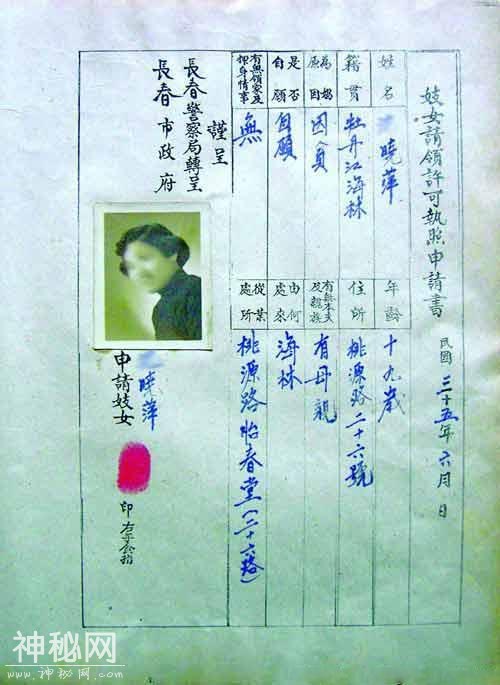 妓女請領許可執照申請書
民國三十五年六月 日
姓名
曉萍
年齡
十九歲
籍貫
牡丹江海林
住所
桃源路二十六號
為娼原因
因貧
有無本夫及親族
有母親
是否自願
自願
由何處來
海林
有無領家及押身情事
無
從業處所
桃源路怡春堂(二十六號)
謹呈
長春警察局轉呈
長春市政府
曉萍
申請妓女
印
神秘网
www.神秘网.com